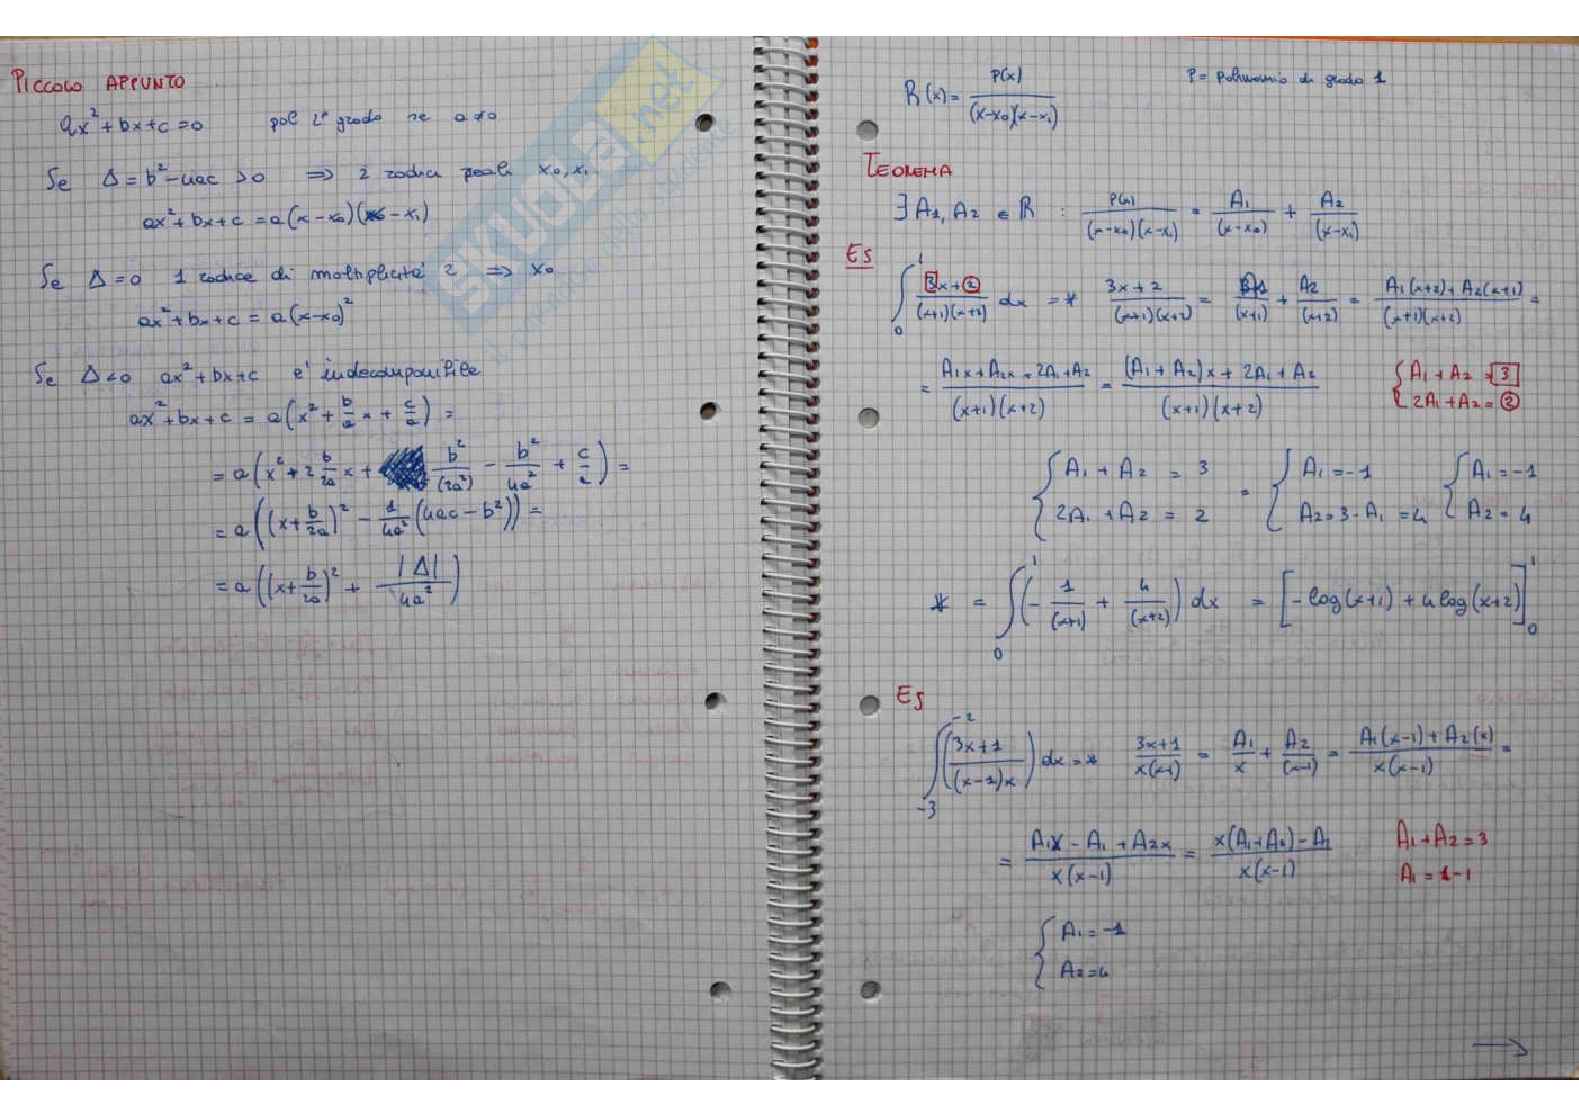 PICCOLO APPUNTO
ax²+bx+c=0 pol 2° grado se a≠0
Se Δ=b²-4ac >0 => 2 radici reali x₀,x₁
ax²+bx+c = a(x-x₀)(x-x₁)
Se Δ=0 1 radice di molteplicità 2 => x₀
ax²+bx+c = a(x-x₀)²
Se Δ<0 ax²+bx+c e' indecomponibile
ax²+bx+c = a(x²+b/a x+c/a) =
= a(x²+2 b/2a x + b²/(2a²) - b²/4a² + c/a) =
= a((x+b/2a)² - 1/4a² (4ac-b²)) =
= a((x+b/2a)² + |Δ|/4a²)
R(x) = P(x)/(x-x₀)(x-x₁) P= polinomio di grado 1
TEOREMA
∃ A₁, A₂ ∈ R : P(x)/(x-x₀)(x-x₁) = A₁/(x-x₀) + A₂/(x-x₁)
ES
∫₀¹ 3x+2/(x+1)(x+2) dx = * 3x+2/(x+1)(x+2) = A₁/(x+1) + A₂/(x+2) = A₁(x+2)+A₂(x+1)/(x+1)(x+2) =
= A₁x+A₂x+2A₁+A₂/(x+1)(x+2) = (A₁+A₂)x+2A₁+A₂/(x+1)(x+2) { A₁+A₂=3 2A₁+A₂=2
{ A₁+A₂=3 2A₁+A₂=2 = { A₁=-1 A₂=3-A₁=4 { A₁=-1 A₂=4
* = ∫₀¹ (-1/(x+1) + 4/(x+2)) dx = [-log(x+1)+4log(x+2)]₀¹
ES
∫₋₃⁻² (3x+1/(x-1)x) dx = * 3x+1/x(x-1) = A₁/x + A₂/(x-1) = A₁(x-1)+A₂(x)/x(x-1) =
= A₁x-A₁+A₂x/x(x-1) = x(A₁+A₂)-A₁/x(x-1) A₁+A₂=3
A₁=1-1
{ A₁=-1
A₂=4
→
SKUOLA.net